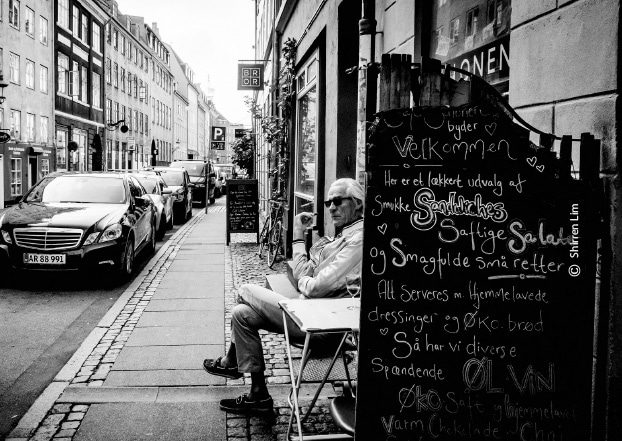 BROR
P
AR 88 991
ONEN
byder
Velkommen
Her er et lækkert udvalg af
Smukke Sandwiches
Saftige Salate
og Smagfulde små retter
Alt Serveres m. Hjemmelavede
dressinger og ØKO. brød
Så har vi diverse
Spændende ØL VIN
ØKO Saft og Hjemmelavet
Varm Chokolade
© Shirren Lim